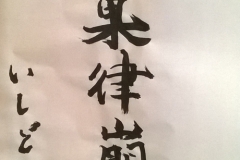 果律崩
いしど